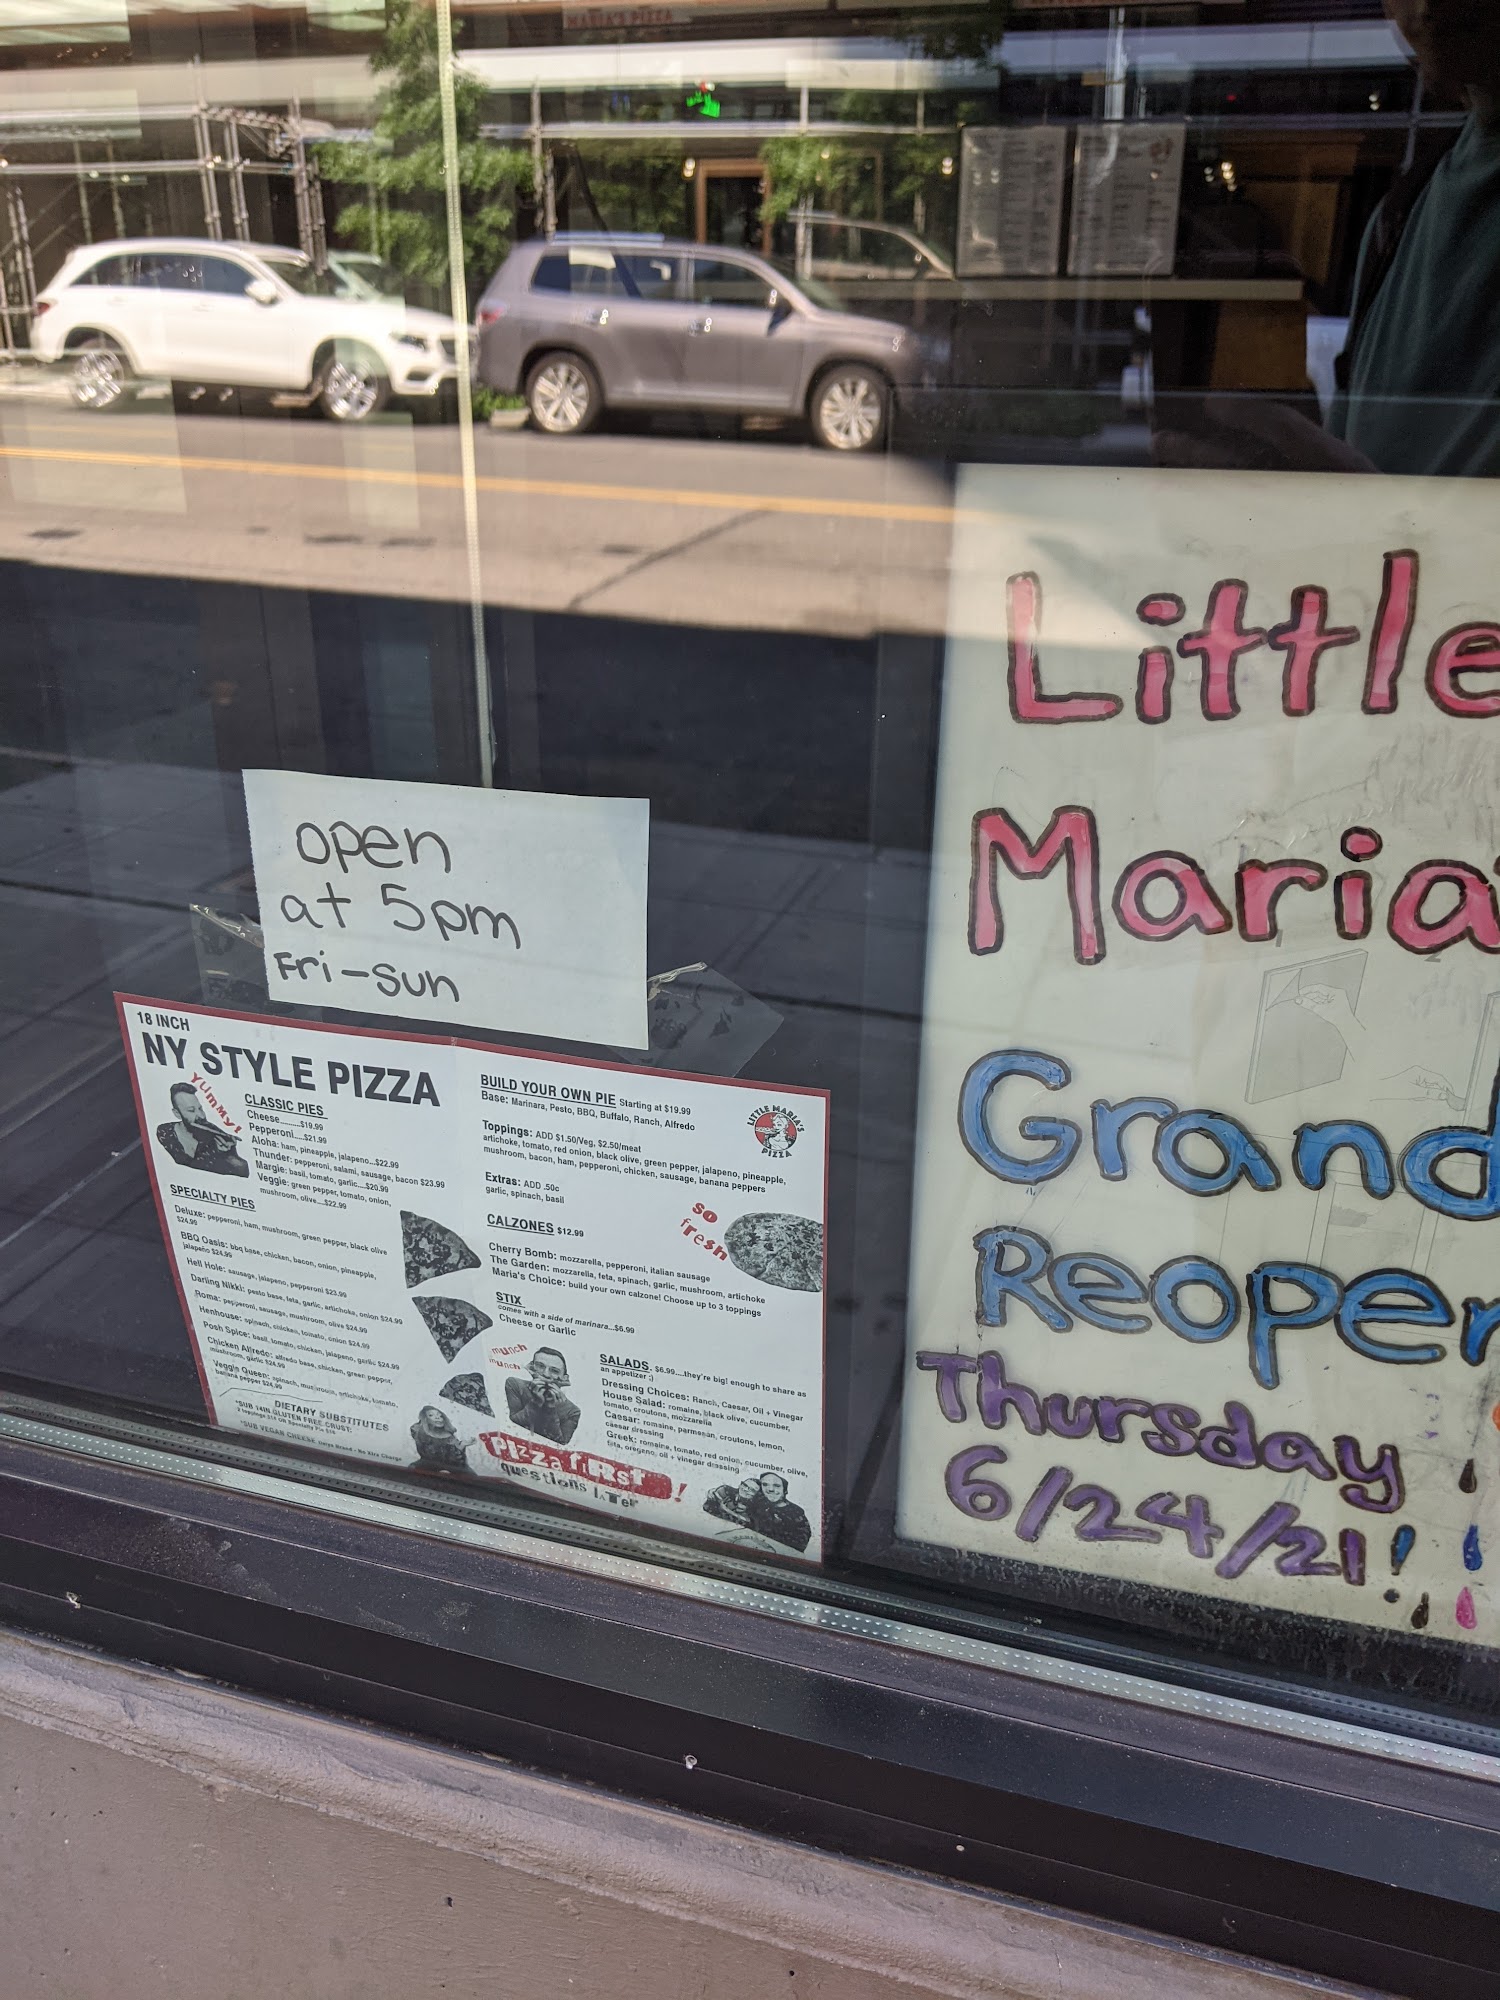 MARIA'S PIZZA
Little
Maria
Grand
Reoper
Thursday
6/24/21!!
open
at 5pm
Fri-Sun
18 INCH
NY STYLE PIZZA
YUMMY!
CLASSIC PIES
Cheese.........$19.99
Pepperoni....$21.99
Aloha: ham, pineapple, jalapeno...$22.99
Thunder: pepperoni, salami, sausage, bacon $23.99
Margie: basil, tomato, garlic....$20.99
Veggie: green pepper, tomato, onion,
mushroom, olive....$22.99
SPECIALTY PIES
Deluxe: pepperoni, ham, mushroom, green pepper, black olive
$24.99
BBQ Oasis: bbq base, chicken, bacon, onion, pineapple,
jalapeño $24.99
Hell Hole: sausage, jalapeno, pepperoni $23.99
Darling Nikki: pesto base, feta, garlic, artichoke, onion $24.99
Roma: pepperoni, sausage, mushroom, olive $24.99
Henhouse: spinach, chicken, tomato, onion $24.99
Posh Spice: basil, tomato, chicken, jalapeno, garlic $24.99
Chicken Alfredo: alfredo base, chicken, green pepper,
mushroom, garlic $24.99
Veggie Queen: spinach, mushroom, artichoke, tomato,
banana pepper $24.99
DIETARY SUBSTITUTES
*SUB 14IN GLUTEN FREE CRUST:
*SUB VEGAN CHEESE
BUILD YOUR OWN PIE Starting at $19.99
Base: Marinara, Pesto, BBQ, Buffalo, Ranch, Alfredo
LITTLE MARIA'S
PIZZA
Toppings: ADD $1.50/Veg, $2.50/meat
artichoke, tomato, red onion, black olive, green pepper, jalapeno, pineapple,
mushroom, bacon, ham, pepperoni, chicken, sausage, banana peppers
Extras: ADD .50c
garlic, spinach, basil
so
fresh
CALZONES $12.99
Cherry Bomb: mozzarella, pepperoni, italian sausage
The Garden: mozzarella, feta, spinach, garlic, mushroom, artichoke
Maria's Choice: build your own calzone! Choose up to 3 toppings
STIX
comes with a side of marinara...$6.99
Cheese or Garlic
munch
munch
SALADS. $6.99....they're big! enough to share as
an appetizer ;)
Dressing Choices: Ranch, Caesar, Oil + Vinegar
House Salad: romaine, black olive, cucumber,
tomato, croutons, mozzarella
Caesar: romaine, parmesan, croutons, lemon,
caesar dressing
Greek: romaine, tomato, red onion, cucumber, olive,
feta, oregano, oil + vinegar dressing
Pizza fiRst !
questions lATer